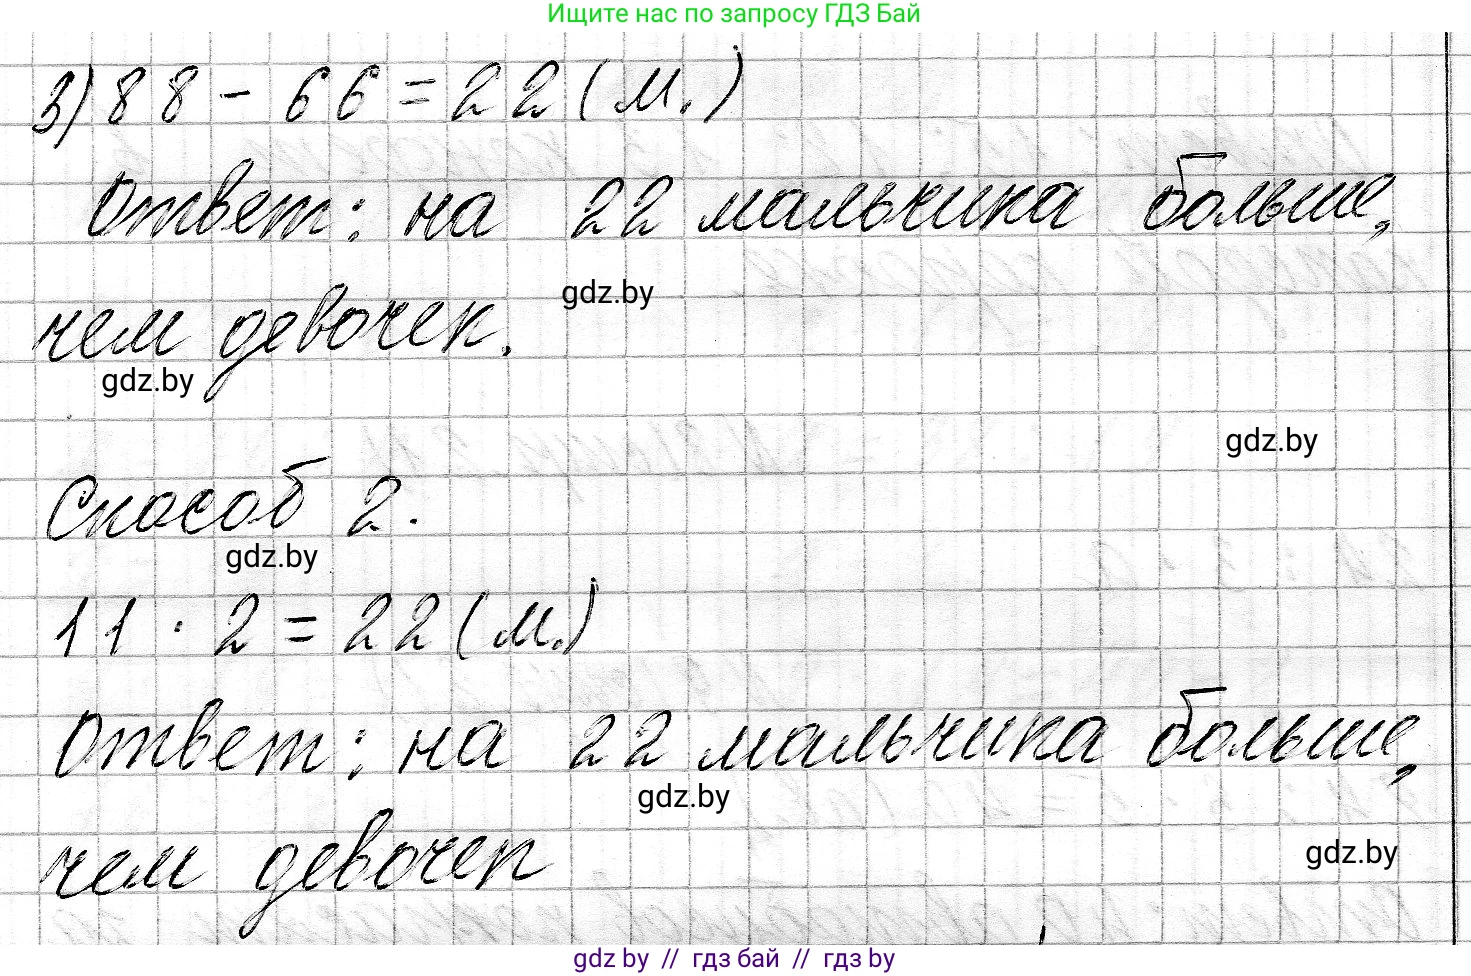 Ищите нас по запросу ГДЗ Бай
3) 88 - 66 = 22 (м.)
Ответ: на 22 мальчика больше,
gdz.by
чем девочек.
gdz.by
gdz.by
Способ 2.
gdz.by
11 · 2 = 22 (м.)
Ответ: на 22 мальчика больше,
gdz.by
чем девочек
gdz.by
gdz.by // гдз бай // гдз by